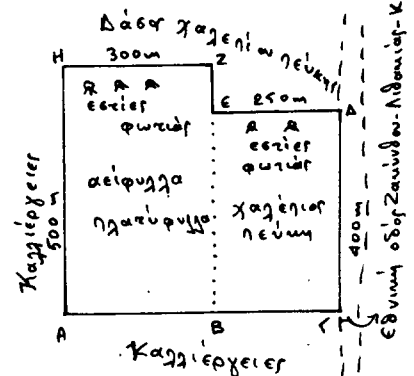 Δάσος χαλεπίου πεύκης
Η
300m
Ζ
εστίες
φωτιάς
Ε
250m
Δ
εστίες
φωτιάς
αείφυλλα
πλατύφυλλα
χαλέπιος
πεύκη
Καλλιέργειες
500m
400m
Εθνική οδός Ζακύνθου-Λιθακιάς-Κ
Α
Β
Γ
Καλλιέργειες